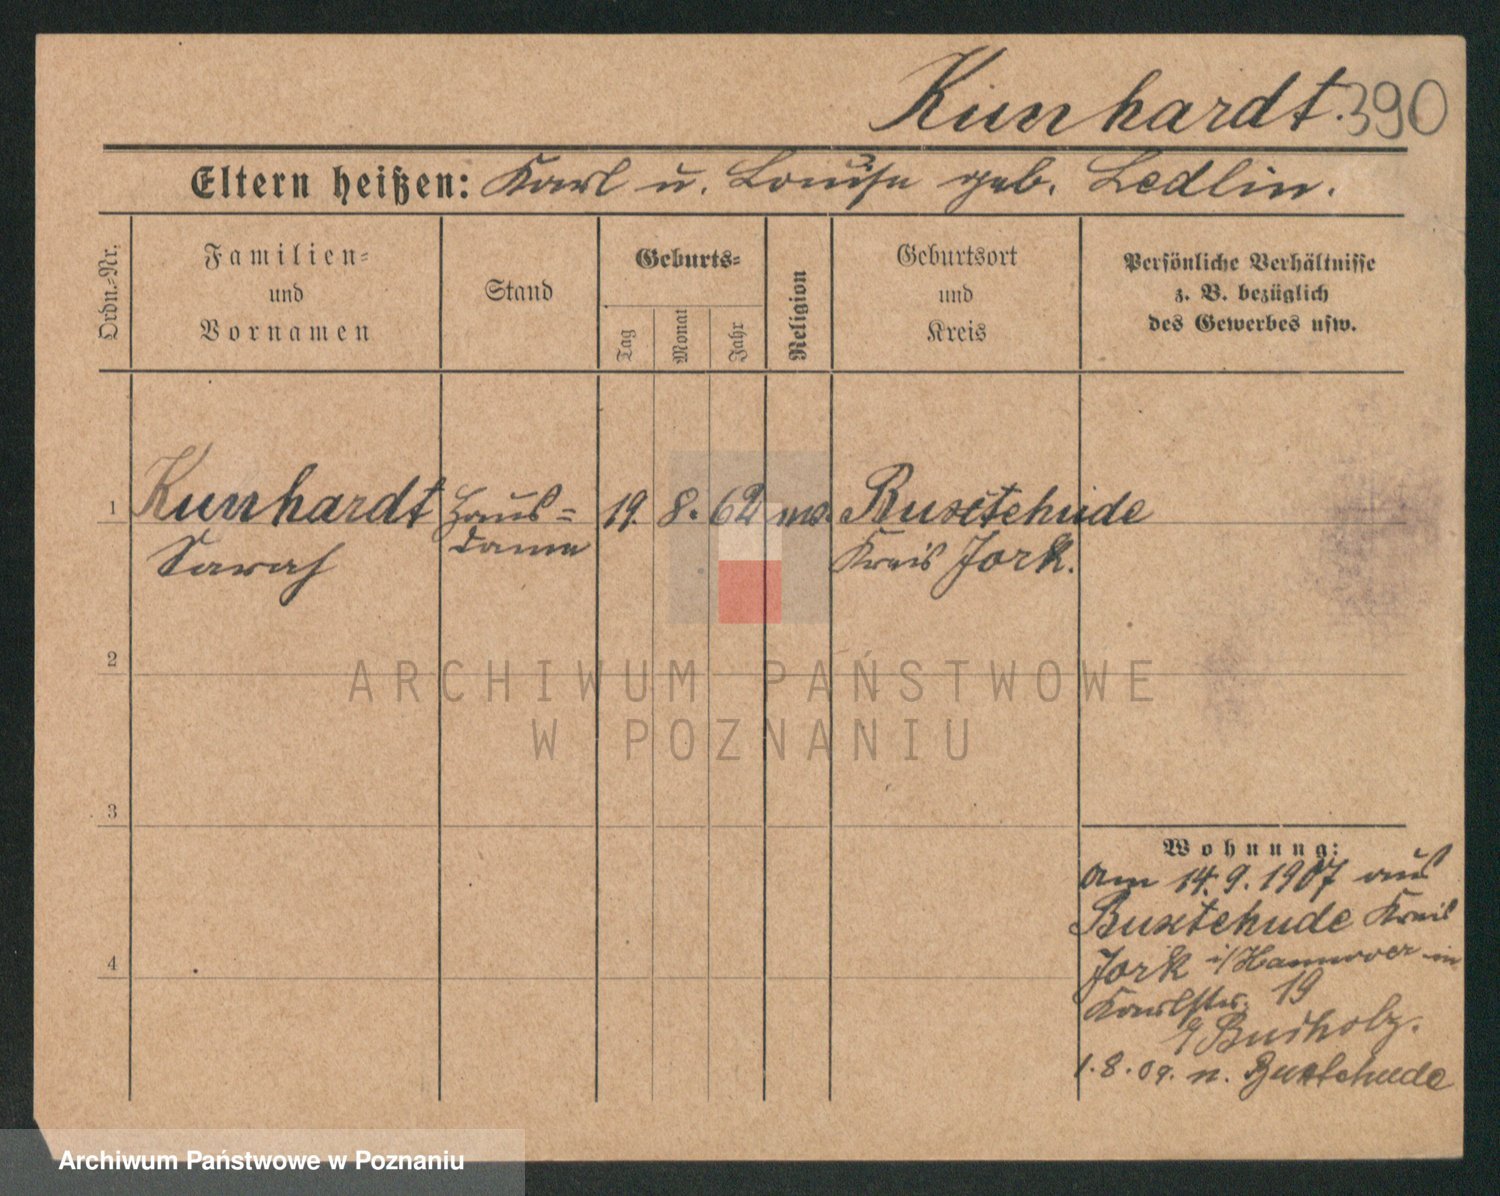 Kunhardt. 390
Eltern heißen: Karl u. Louise geb. Ledlin.
Ordn.-Nr.
Familien-
und
Vornamen
Stand
Geburts-
Tag
Monat
Jahr
Religion
Geburtsort
und
Kreis
Persönliche Verhältnisse
z. B. bezüglich
des Gewerbes usw.
1 Kunhardt Haus- 19. 8. 62 Buxtehude
Sarah dame Kreis Jork.
2
3
4
Wohnung:
am 14.9.1907 aus
Buxtehude Kreis
Jork i/Hannover in
Karlstr. 19
Buchholz.
1.8.09. n. Buxtehude
ARCHIWUM PAŃSTWOWE
W POZNANIU
Archiwum Państwowe w Poznaniu